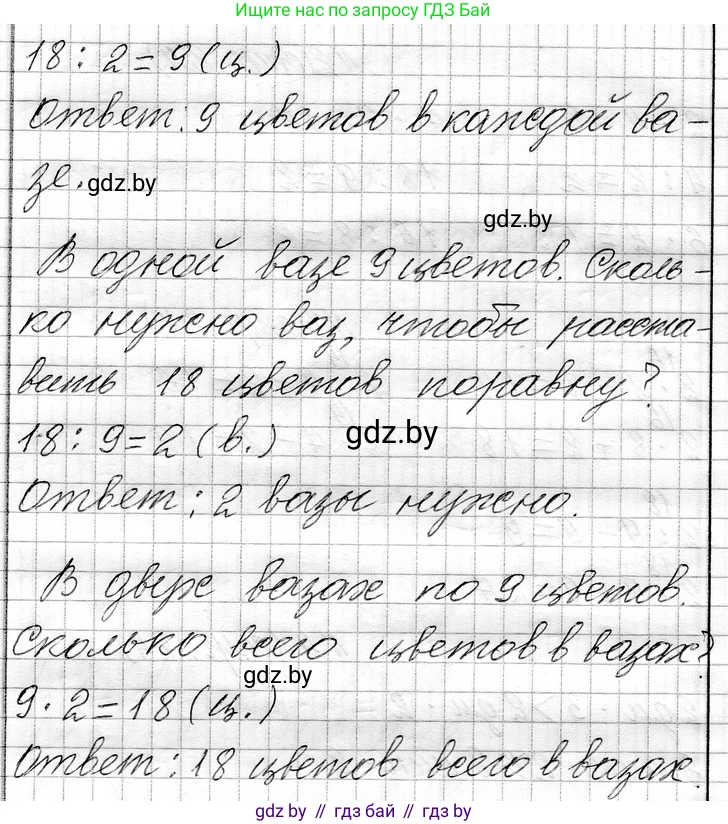 Ищите нас по запросу ГДЗ Бай
18 : 2 = 9 (ц.)
Ответ: 9 цветов в каждой ва-
зе.
gdz.by
gdz.by
В одной вазе 9 цветов. Сколь-
ко нужно ваз, чтобы расста-
вить 18 цветов поравну?
18 : 9 = 2 (в.)
gdz.by
Ответ: 2 вазы нужно.
В двух вазах по 9 цветов.
Сколько всего цветов в вазах?
gdz.by
9 · 2 = 18 (ц.)
Ответ: 18 цветов всего в вазах.
gdz.by // гдз бай // gdz.by